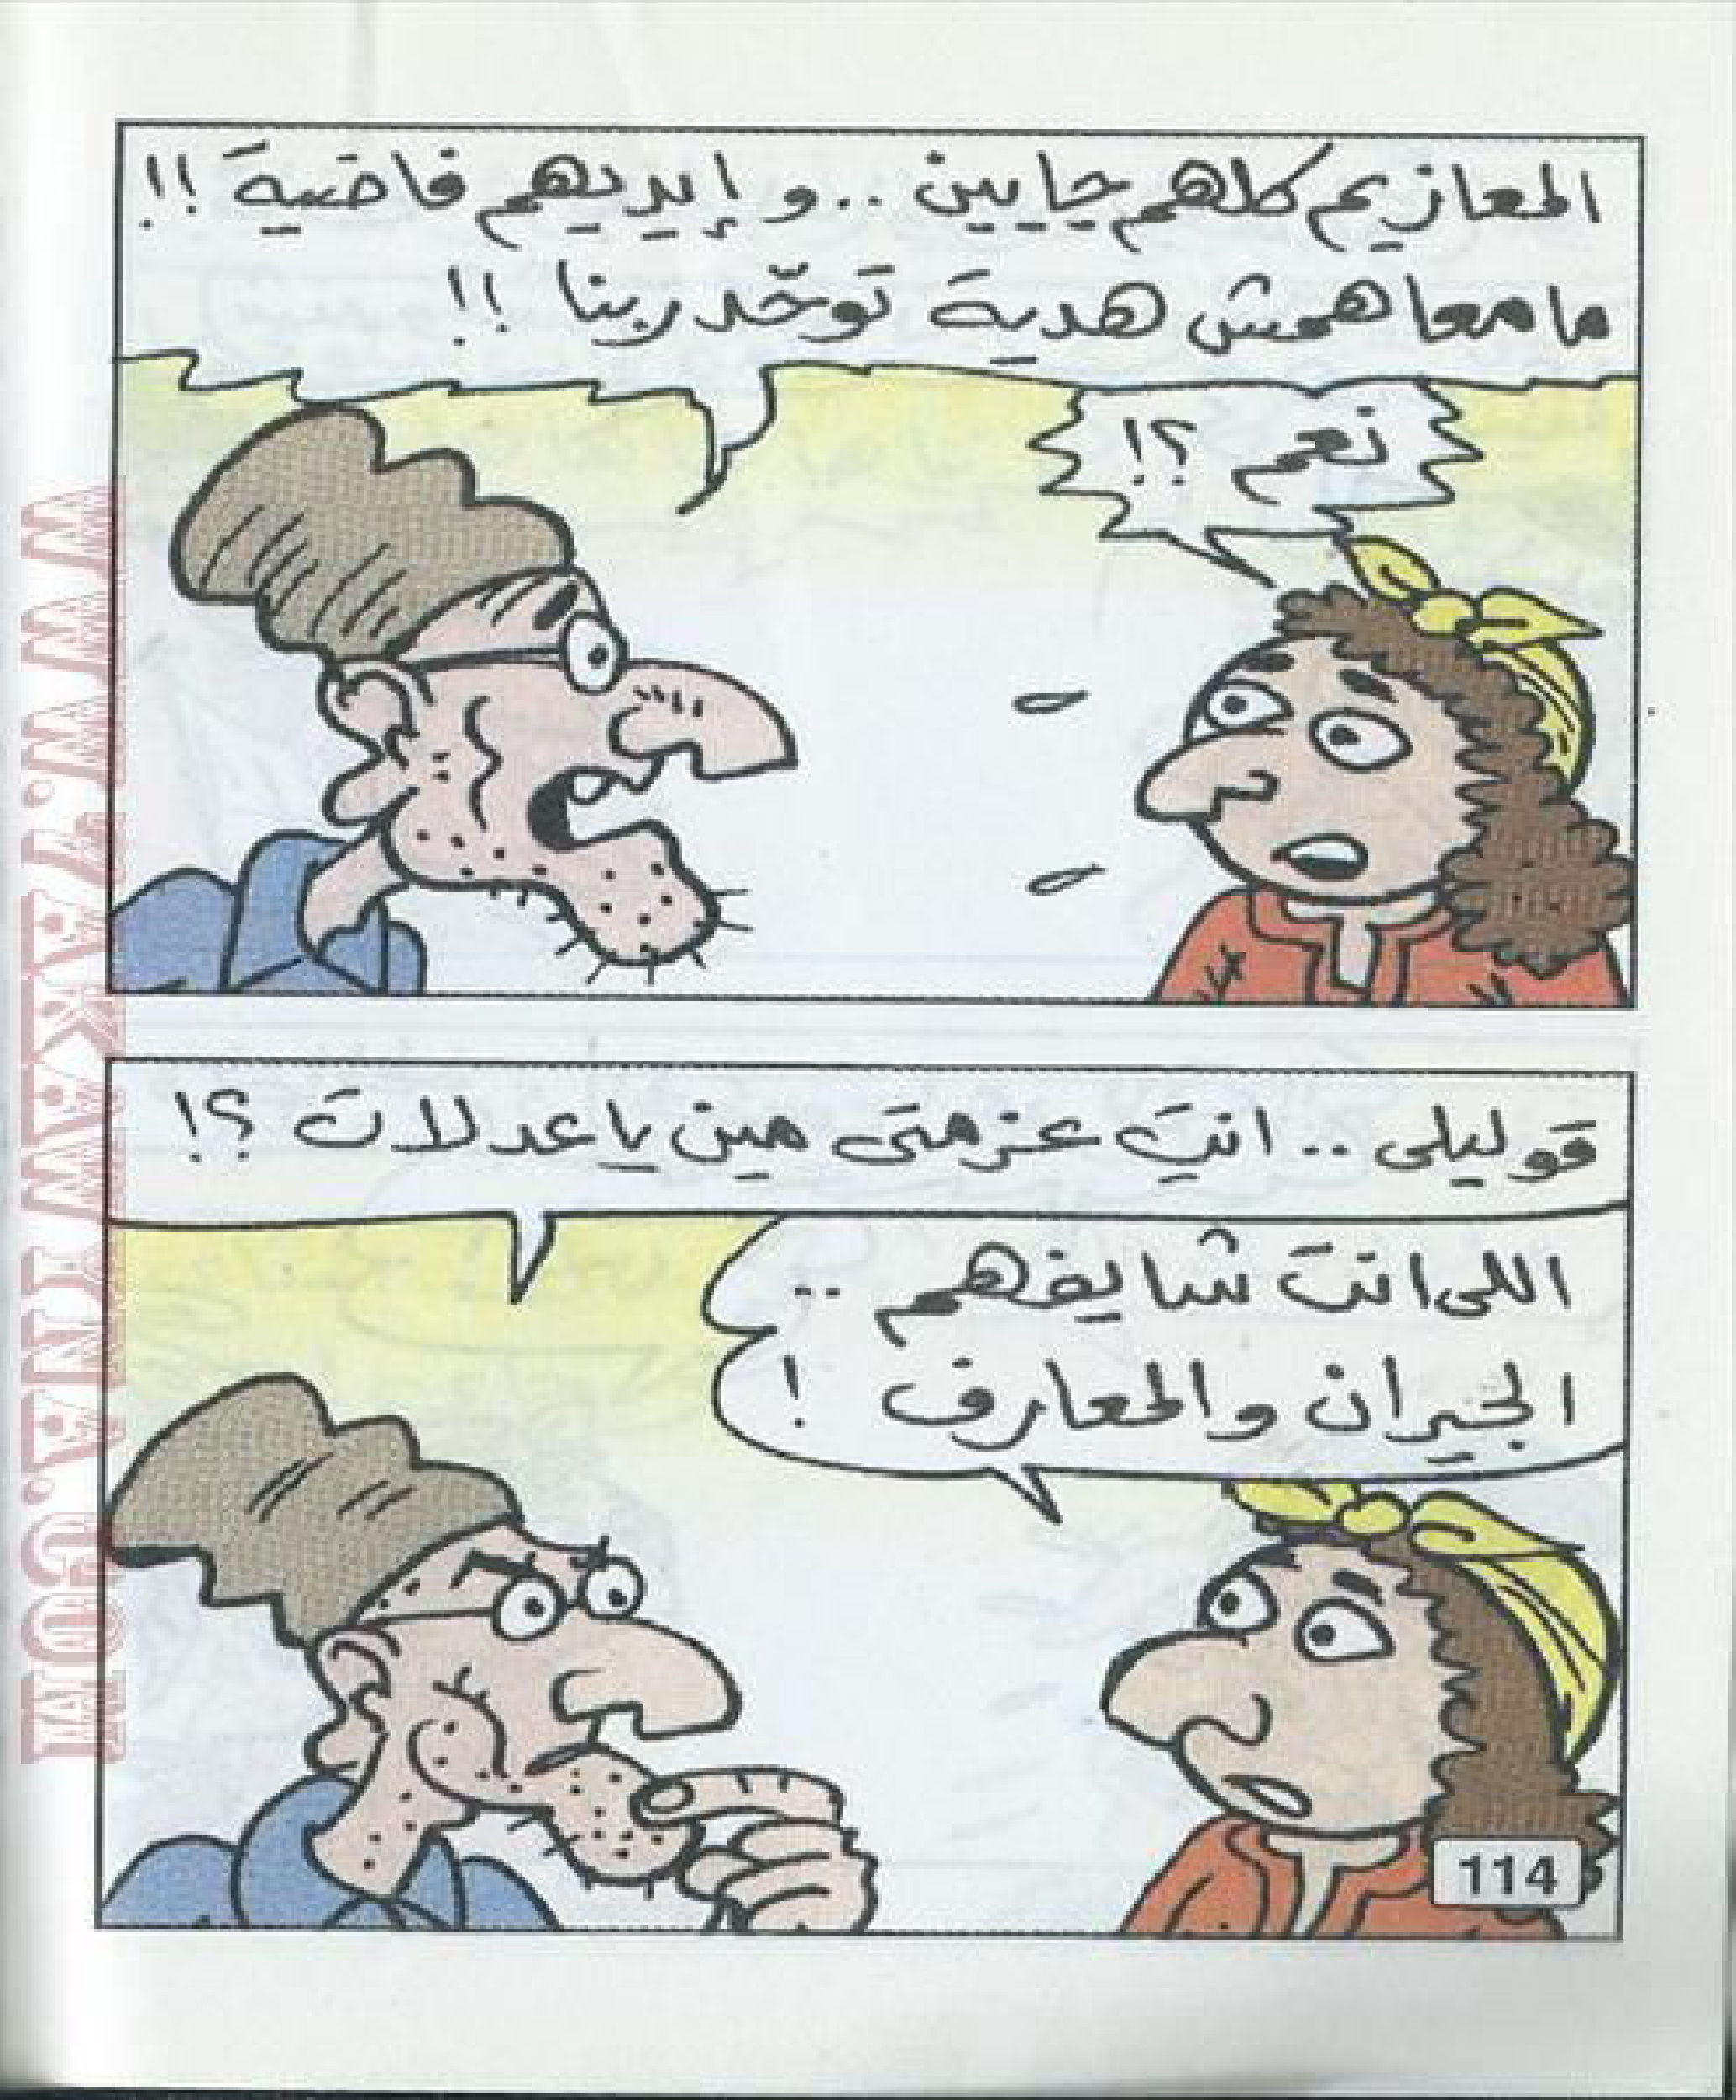 المعازيم كلهم جايين .. و إيديهم فاضية !!
ما معاهمش هدية توحّد ربنا !!
نعم ؟!
قوليلى .. انتِ عزمتى مين يا عدلات ؟!
اللى انتَ شايفهم ..
الجيران والمعارف !
114
WWW.7AKAWINA.COM